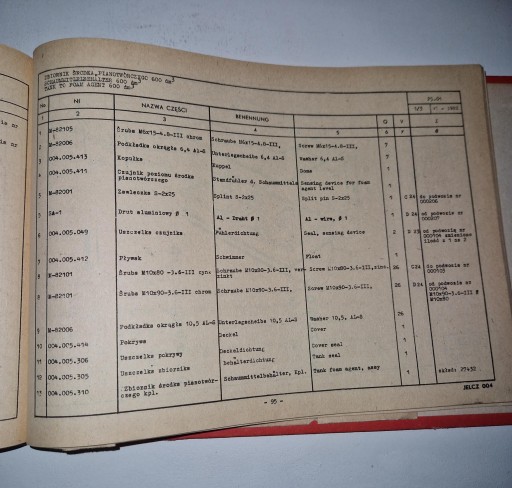 ZBIORNIK ŚRODKA „PIANOTWÓRCZEGO 600 dm³
SCHAUMMITTELBEHÄLTER 600 dm³
TANK TO FOAM AGENT 600 dm³
No Nr NAZWA CZĘŚCI BENENNUNG Q V
1 2 3 4 5 6 7 8
M-82105 Śruba M6x15-4.8-III chrom Schraube M6x15-4.8-III, Screw M6x15-4.8-III, 7
M-82006 Podkładka okrągła 6,4 Al-S Unterlegscheibe 6,4 Al-S Washer 6,4 Al-S 7
004.005.413 Kopułka Kuppel Dome
004.005.411 Czujnik poziomu środka Standfühler d. Schaummittels Sensing device for foam
pianotwórczego agent level
M-82001 Zawleczka S-2x25 Splint S-2x25 Split pin S-2x25 do podwozia nr
000206
SA-1 Drut aluminiowy Ø 1 Al - Draht Ø 1 Al - wire, Ø 1 od podwozia nr
000207
004.005.049 Uszczelka czujnika Fühlerdichtung Seal, sensing device 2 od podwozia nr
000104 zmieniono
ilość z 1 na 2
004.005.412 Pływak Schwimmer Float 1
M-82101 Śruba M10x80 -3.6-III cynk Schraube M10x80-3.6-III, ver- Screw M10x80-3.6-III,zinc. 26 do podwozia nr
zinkt 000103
M-82101 Śruba M10x90-3.6-III chrom Schraube M10x90-3.6-III, Screw M10x90-3.6-III, 26 od podwozia nr
000104
M10x90-3.6-III
M10x80
9 M-82006 Podkładka okrągła 10,5 Al-S Unterlegscheibe 10,5 Al-S Washer 10,5 Al-S 26
10 004.005.414 Pokrywa Deckel Cover 1
11 004.005.306 Uszczelka pokrywy Deckeldichtung Cover seal 1
12 004.005.305 Uszczelka zbiornika Behälterdichtung Tank seal 1
13 004.005.310 Zbiornik środka pianotwór- Schaummittelbehälter, Kpl. Tank foam agent, assy 1
czego kpl.
- 95 -
JELCZ 004